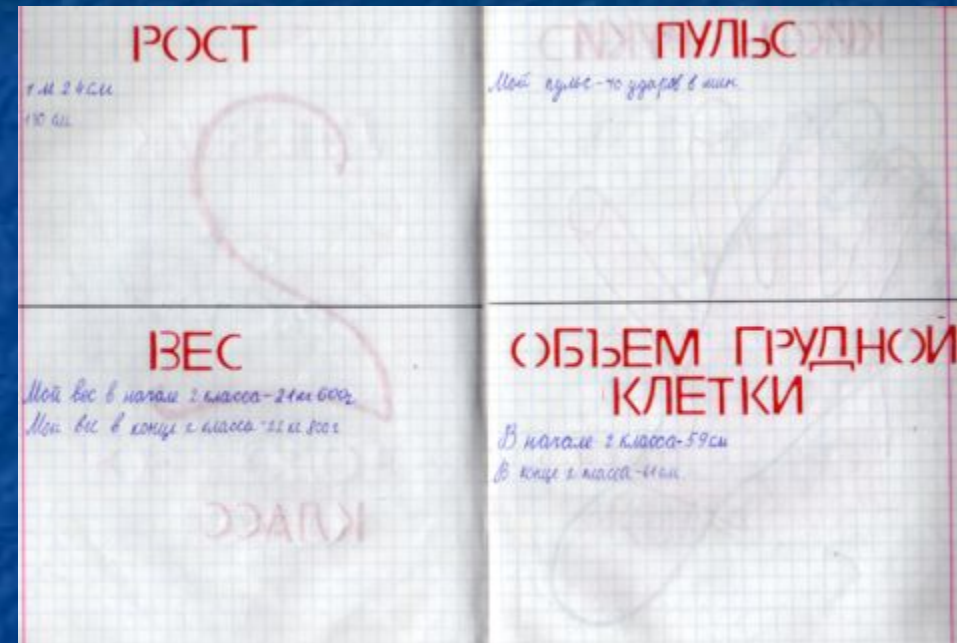 РОСТ
1 м 24 см
130 см
ПУЛЬС
Мой пульс - 70 ударов в мин.
ВЕС
Мой вес в начале 2 класса - 21 кг 600г
Мой вес в конце 2 класса - 22 кг 800г
ОБЪЕМ ГРУДНОЙ
КЛЕТКИ
В начале 2 класса - 59 см
В конце 2 класса - 61 см.
КЛАСС